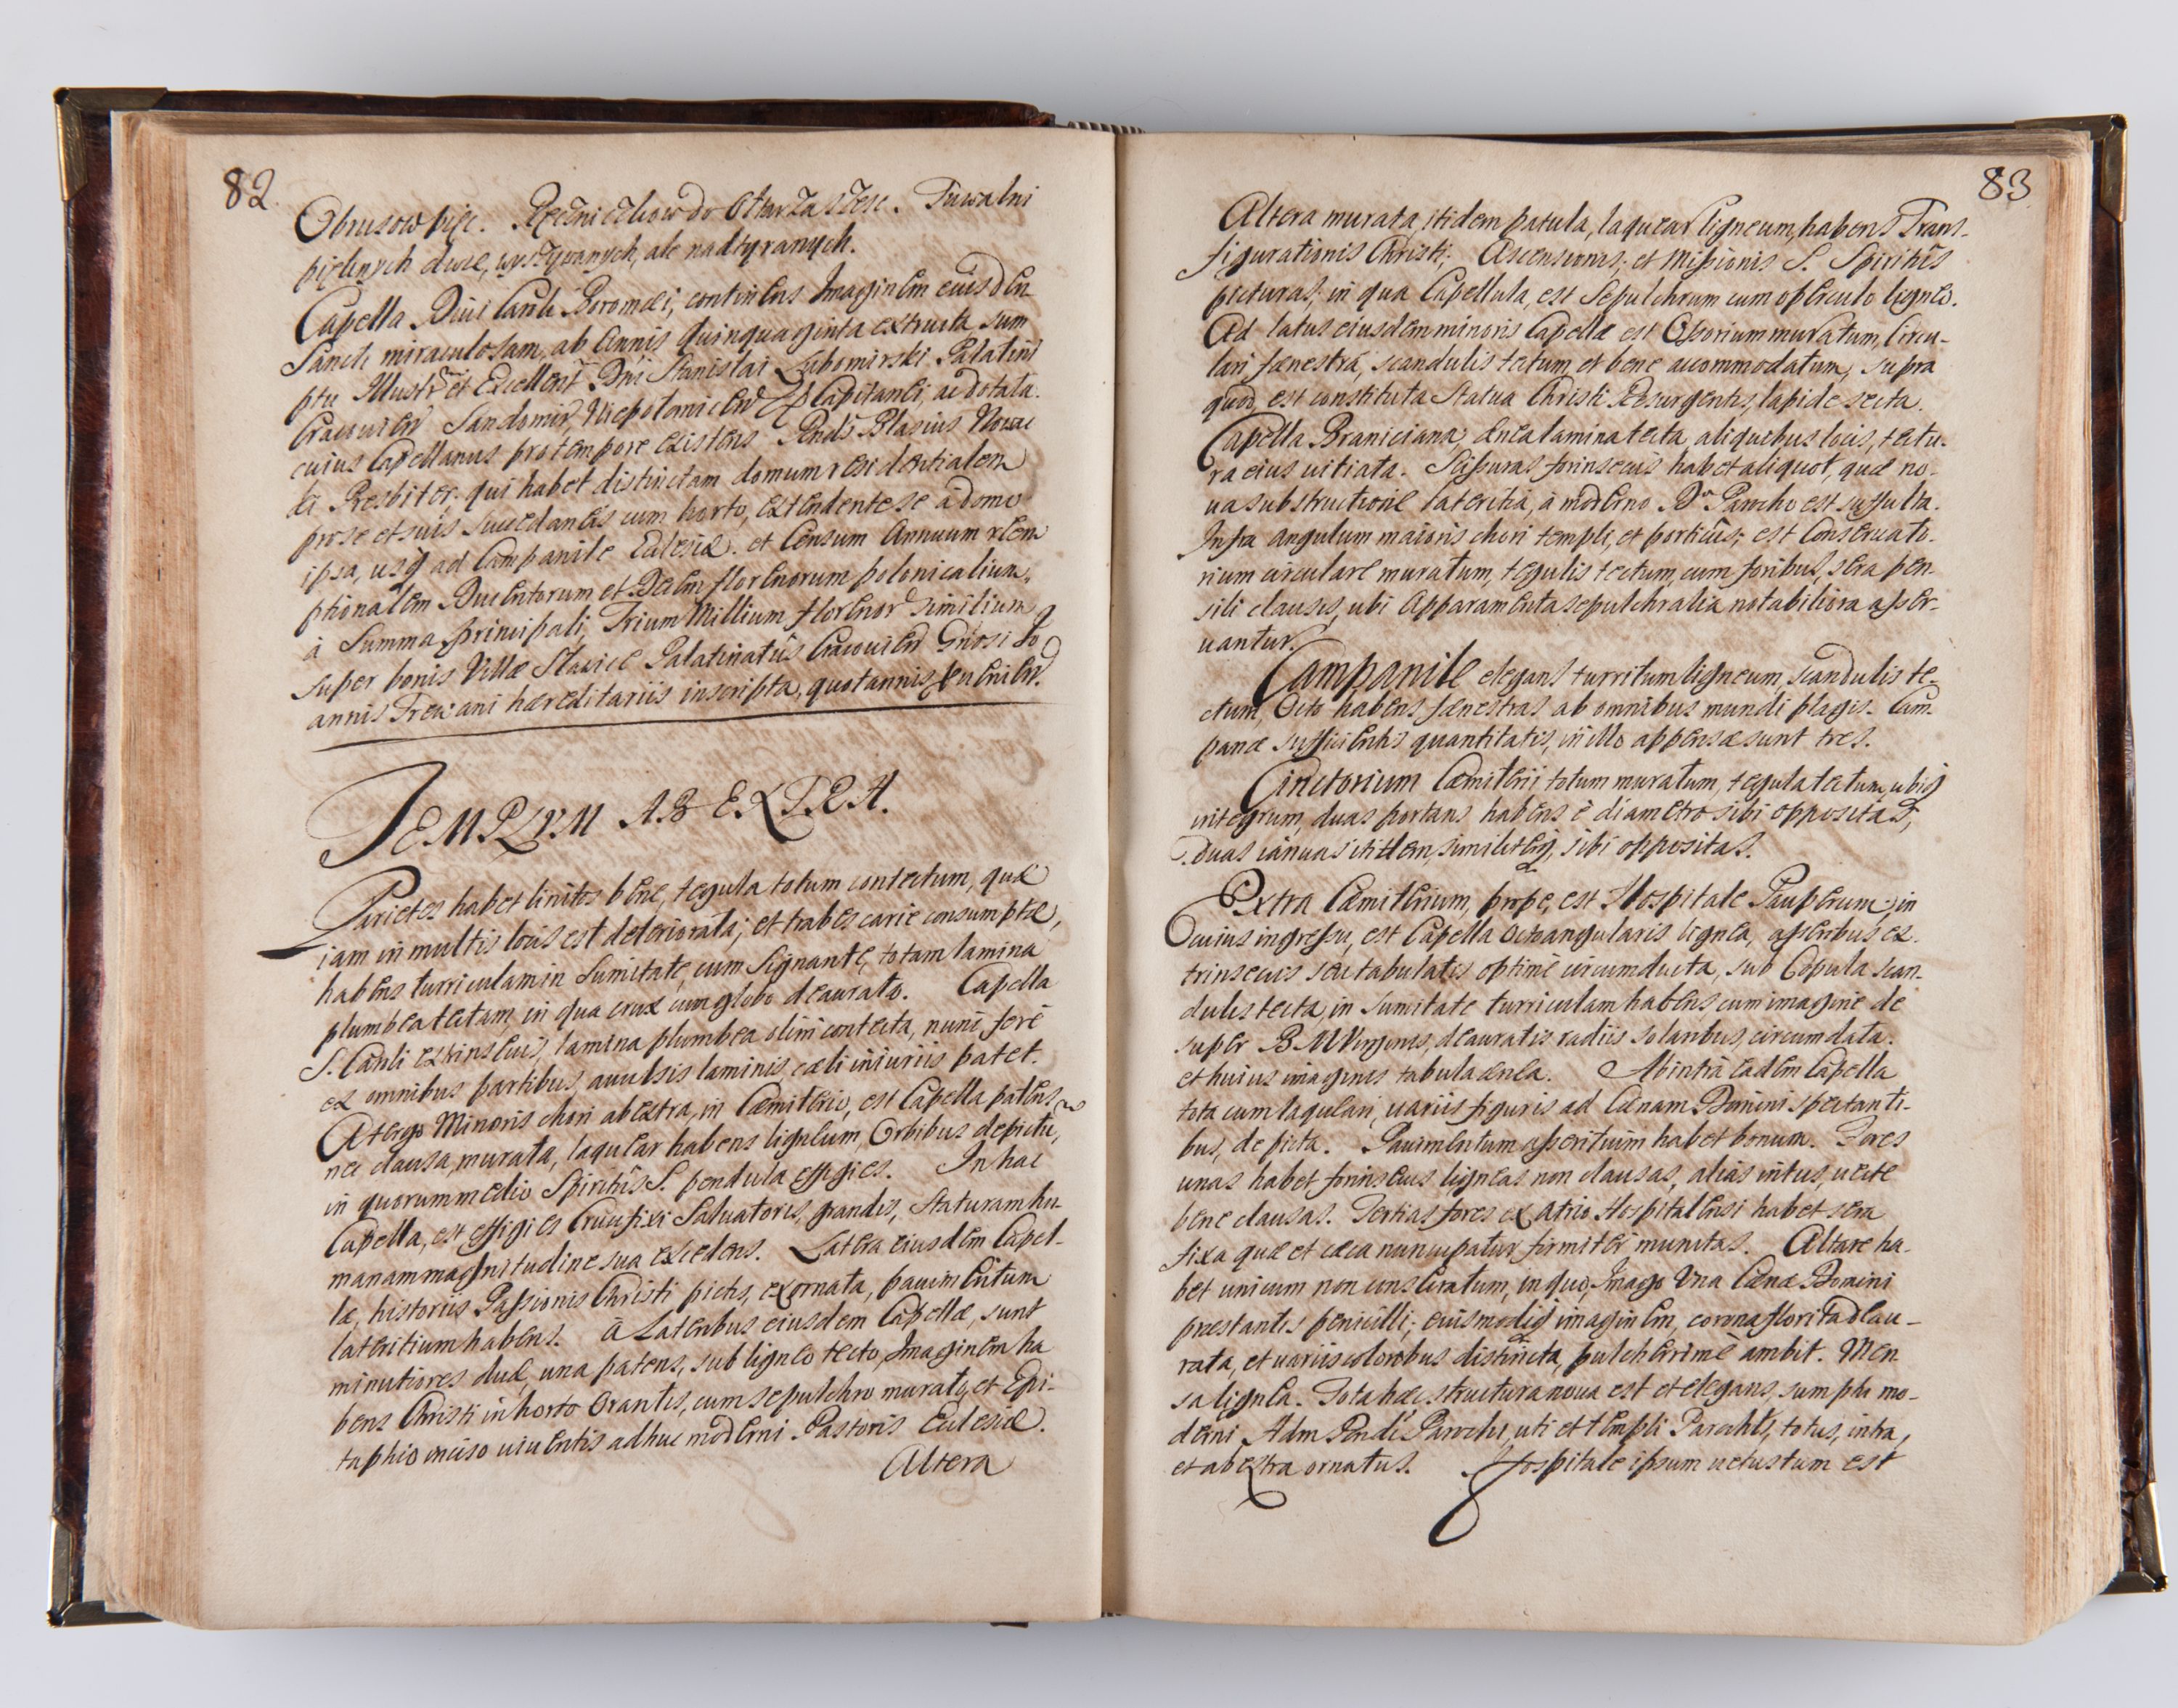 82
Obrusow pięc. Ręczniczkow do Ołtarza szesc. Tuwalni
pięknych dwie, wyszywanych, ale nadtyranych.
Capella Diui Caroli Boromæi, continens Imaginem eiusdem
Sancti miraculosam, ab Annis quinquaginta extructa sum
ptu Illustr et Excellent Dni Stanislai Lubomirski Palatini
Cracouien Sandomir Niepolomicen Capitanei, ac dotata.
cuius Capellanus pro tempore existens Rnds Blasius Nowac
ki Presbiter, qui habet distinctam domum residentialem
pro se et suis succedaneis cum horto, extendente se à domo
ipsa, usq ad Campanile Ecclesiæ. et Censum Annuum reem
ptionalem Ducentorum et Decem florenorum polonicalium,
à Summa principali, Trium Millium florenor similium
super bonis Villæ Stawice Palatinatûs Cracouien Gnosi Jo
annis Frecani hæreditariis inscripta, quotannis
TEMPLVM AB EXTRA.
Parietes habet linitos bene, tegula totum contectum, quæ
iam in multis locis est deteriorata, et trabes carie consumptæ,
habens turriculam in Sumitate, cum Signante, totam lamina
plumbea tectam, in qua crux cum globo deaurato. Capella
S. Caroli extrinsecus, lamina plumbea olim contecta, nunc ferè
ex omnibus partibus, auulsis laminis, cæli iniuriis patet.
A tergo Minoris chori ab extra, in Cæmiterio, est Capella patens
nec clausa, murata, laquear habens ligneum, Orbibus depictu,
in quorum medio Spiritûs S. pendula effigies. In hac
Capella, est effigies Crucifixi Saluatoris, grandis, staturam hu-
manam magnitudine sua excedens. Latera eiusdem Capel-
læ, historiis Passionis Christi pictis, exornata, pauimentum
lateritium habens. à Lateribus eiusdem Capellæ, sunt
minutiores duæ, una patens, sub ligneo tecto, Imaginem ha
bens Christi in horto Orantis, cum sepulchro murato, et Epi-
taphio inciso viuentis adhuc moderni Pastoris Ecclesiæ.
Altera
83
Altera murata, itidem patula, laquear ligneum, habens Trans-
figurationis Christi; Ascensionis; et Missionis S. Spiritûs
picturas; in qua Capellula, est Sepulchrum cum operculo ligneo.
Ad latus eiusdem minoris Capellæ est Ossorium muratum, Circu-
lari fænestrâ, scandulis tectum, et bene accommodatum, supra
quod est constituta Statua Christi Resurgentis, lapide secta.
Capella Braniciana, ænea lamina tecta, aliquibus locis, tectu-
ra eius uitiata. Scissuras forinsecus habet aliquot, quæ no-
ua substructione lateritia, à moderno Dn Parocho est suffulta.
Infra angulum maioris chori templi, et porticûs; est Conseruato-
rium circulare muratum, tegulis tectum, cum foribus, sera pen-
sili clausis, ubi Apparamenta sepulchralia notabiliora asser-
uantur.
Campanile elegans turritum ligneum, scandulis te-
ctum, Octo habens fænestras ab omnibus mundi plagis. Cam-
panæ sufficientis quantitatis, in illo appensæ sunt tres.
Cinctorium Cæmiterij totum muratum, tegula tectum, ubiq
integrum, duas portans habens è diametro sibi oppositas,
duas ianuas itidem, similiterq, sibi oppositas.
Extra Cæmiterium, prope, est Hospitale Pauperum; in
cuius ingressu, est Capella Octoangularis lignea, asseribus ex-
trinsecus seu tabulatis optimè circumducta, sub Copula scan-
dulis tecta, in sumitate turriculam habens, cum imagine de
super B. M Virginis, deauratis radiis solaribus, circumdata.
et huius imaginis tabula ænea. Ab intra eadem Capella
tota cum laqueari, uariis figuris ad Cænam Domini spectanti-
bus, depicta. Pauimentum asseritium habet bonum. Fores
unas habet forinsecus ligneas non clausas, alias intus, uecte
bene clausas. Tertias fores ex atrio Hospitalensi habet sera
fixa quæ et cæca nuncupatur firmiter munitas. Altare ha-
bet unicum non consecratum, in quo, Imago Una Cænæ Domini
præstantis penicilli; eiusmodiq imaginem, corona florita deau-
rata, et uariis coloribus distincta, pulcherrimè ambit. Men-
sa lignea. Tota hæc structura noua est et elegans, sumptu mo-
derni Adm Rndi Parochi, uti et templi Parochis, totus, intra,
et ab extra ornatus. Hospitale ipsum uetustum est